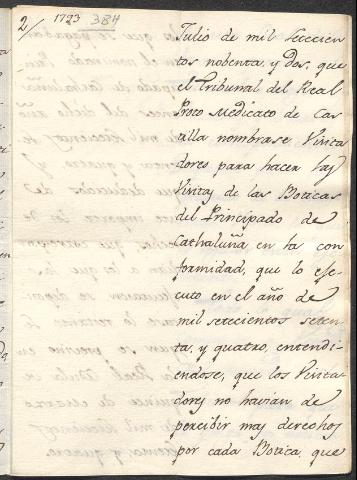 2/ 1793 384
Julio de mil setecien
tos nobenta, y dos, que
el Tribunal del Real
Proto Medicato de Cas
tilla nombrase Visita
dores para hacer las
Visitas de las Boticas
del Principado de
Cathaluña en la con
formidad, que lo efe-
cuto en el año de
mil setecientos seten
ta, y quatro, entendi-
endose, que los Visita
dores no havian de
percibir mas derechos
por cada Botica, que